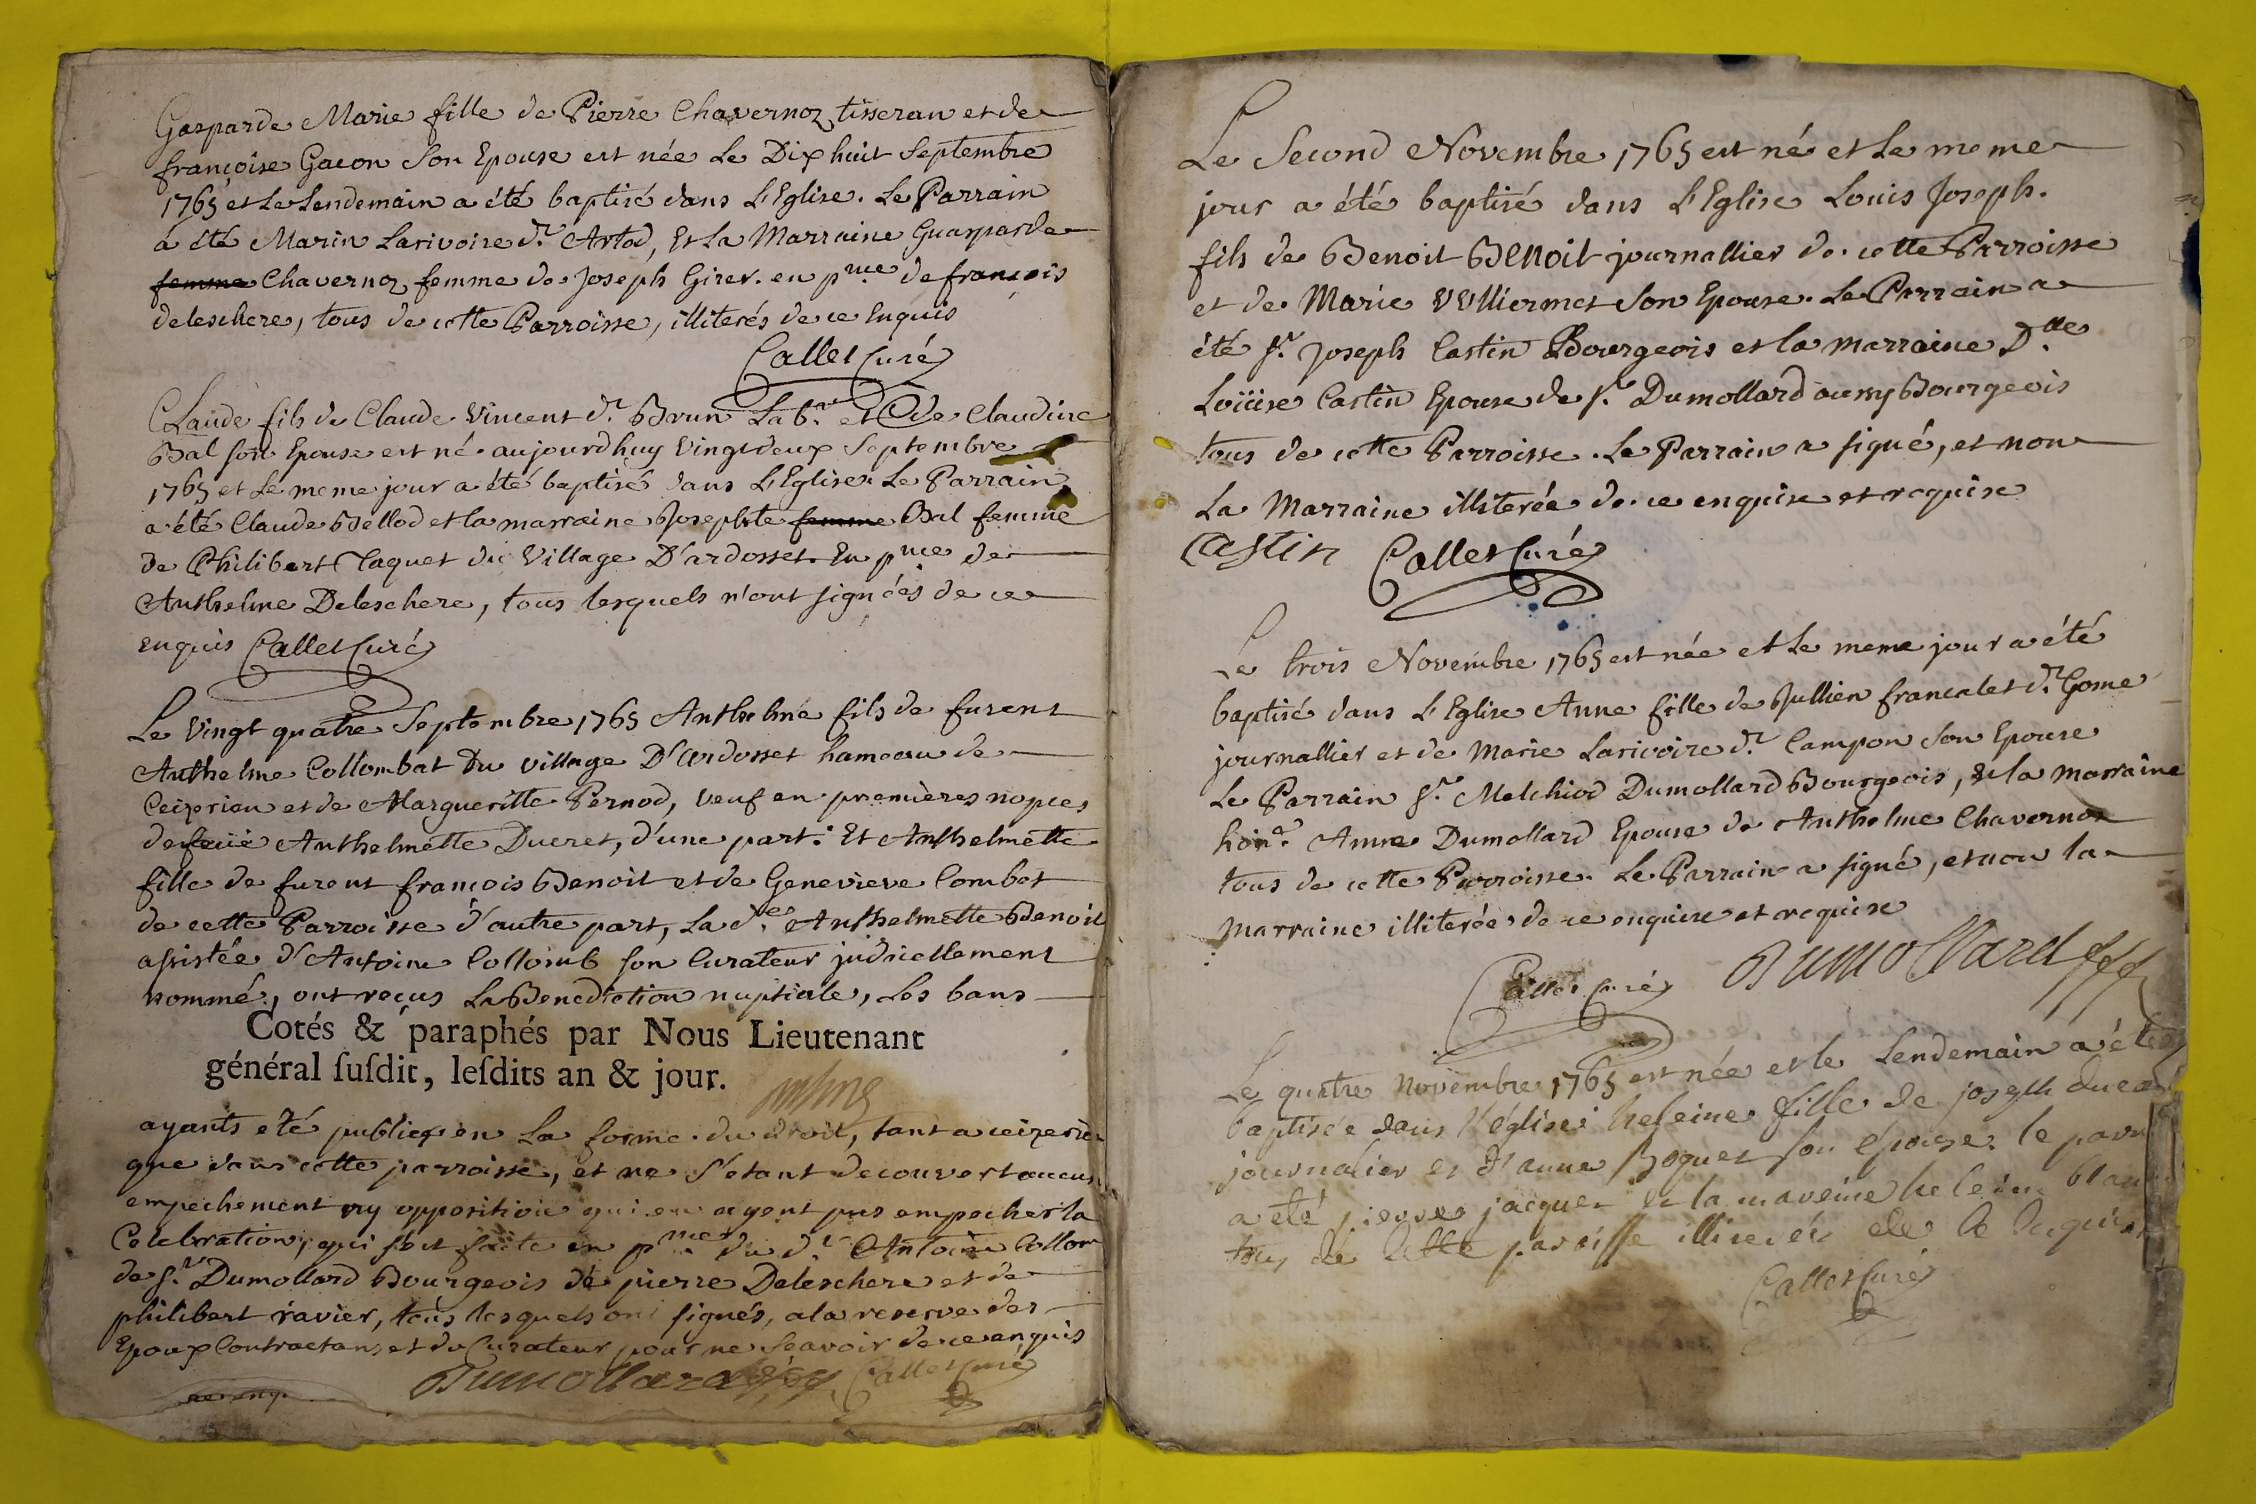 Gasparde Marie fille de Pierre Chavernoz tisseran et de
françoise Gacon Son Epouse est née Le Dix huit Septembre
1765 et Le Lendemain a été baptisé dans L'Eglise. Le Parrain
a été Marin Larivoire d.t Artod, Et La Marraine Guasparde
femme Chavernoz femme de Joseph Girer. en p.nce de françois
deleschere, tous de cette Parroisse, illiterés de ce Enquis
Callet Curé
Claude fils de Claude Vincent d.t Brun Lab.r et de Claudine
Bal son Epouse est né aujourdhuy Vingt deux Septembre
1765 et Le meme jour a été baptisé dans L'Eglise. Le Parrain
a été Claude Bellod et la marraine Josephte femme Bal femme
de Philibert Jaquet du Village D'ardosset. En p.nce de
Anthelme Deleschere, tous lesquels n'ont signéés de ce
enquis Callet Curé
Le Vingt quatre Septembre 1765 Anthelme fils de furent
Anthelme Collombat Du village D'Ardosset hameau de
Ceizerieu et de Margueritte Pernod, veuf en premières nopces
de feüe Anthelmette Ducret, d'une part: Et Anthelmette
fille de furent françois Benoit et de Genevieve Combet
de cette Parroisse d'autre part, La d.e Anthelmette Benoit
assistée d'Antoine Collomb son Curateur judiciellement
nommé, ont reçus La Benediction nuptiale, Les bans
Cotés & paraphés par Nous Lieutenant
général susdit, lesdits an & jour.
ayants été publiés en La forme du droit, tant a ceizerieu
que dans cette parroisse, et ne s'etant decouvert aucun
empechement ny opposition qui en ayent pus empecher la
Celebration, qui s'est faite en p.nce du d.t Antoine Collom
de s.r Dumollard Bourgeois de pierre Deleschere et de
philibert ravier, tous lesquels ont signés, a la reserve des
Epoux Contractans et du Curateur pour ne Sçavoir de ce enquis
Dumollard Callet Curé
Le Second Novembre 1765 est né et Le meme
jour a été baptisé dans L'Eglise Louis Joseph.
fils de Benoit Benoit journallier de cette Parroisse
et de Marie Vulliermet Son Epouse. Le Parrain a
été s.r Joseph Castin Bourgeois et la marraine D.lle
Loüise Castin Epouse de s.r Dumollard aussy Bourgeois
tous de cette Parroisse. Le Parrain a signé, et non
La Marraine illiterée de ce enquise et requise
Castin Callet Curé
Le trois Novembre 1765 est née et Le meme jour a été
baptisé dans L'Eglise Anne fille de Jullien francalet d.t Gome
journallier et de Marie Larivoire d.t Campon Son Epouse
Le Parrain s.r Melchiod Dumollard Bourgeois, et la marraine
hon.e Anne Dumollard Epouse de Anthelme Chavernoz
tous de cette Parroisse. Le Parrain a signé, et non la
marraine illiterée de ce enquise et requise
Callet Curé Dumollard
Le quatre Novembre 1765 est née et le Lendemain a été
baptisée dans l'église heleine fille de joseph
journalier et d'anne Boquet son épouse. le
a été pierre jacquet et la mareine heleine
tous de cette paroisse illiterés de ce Enquis
Callet Curé